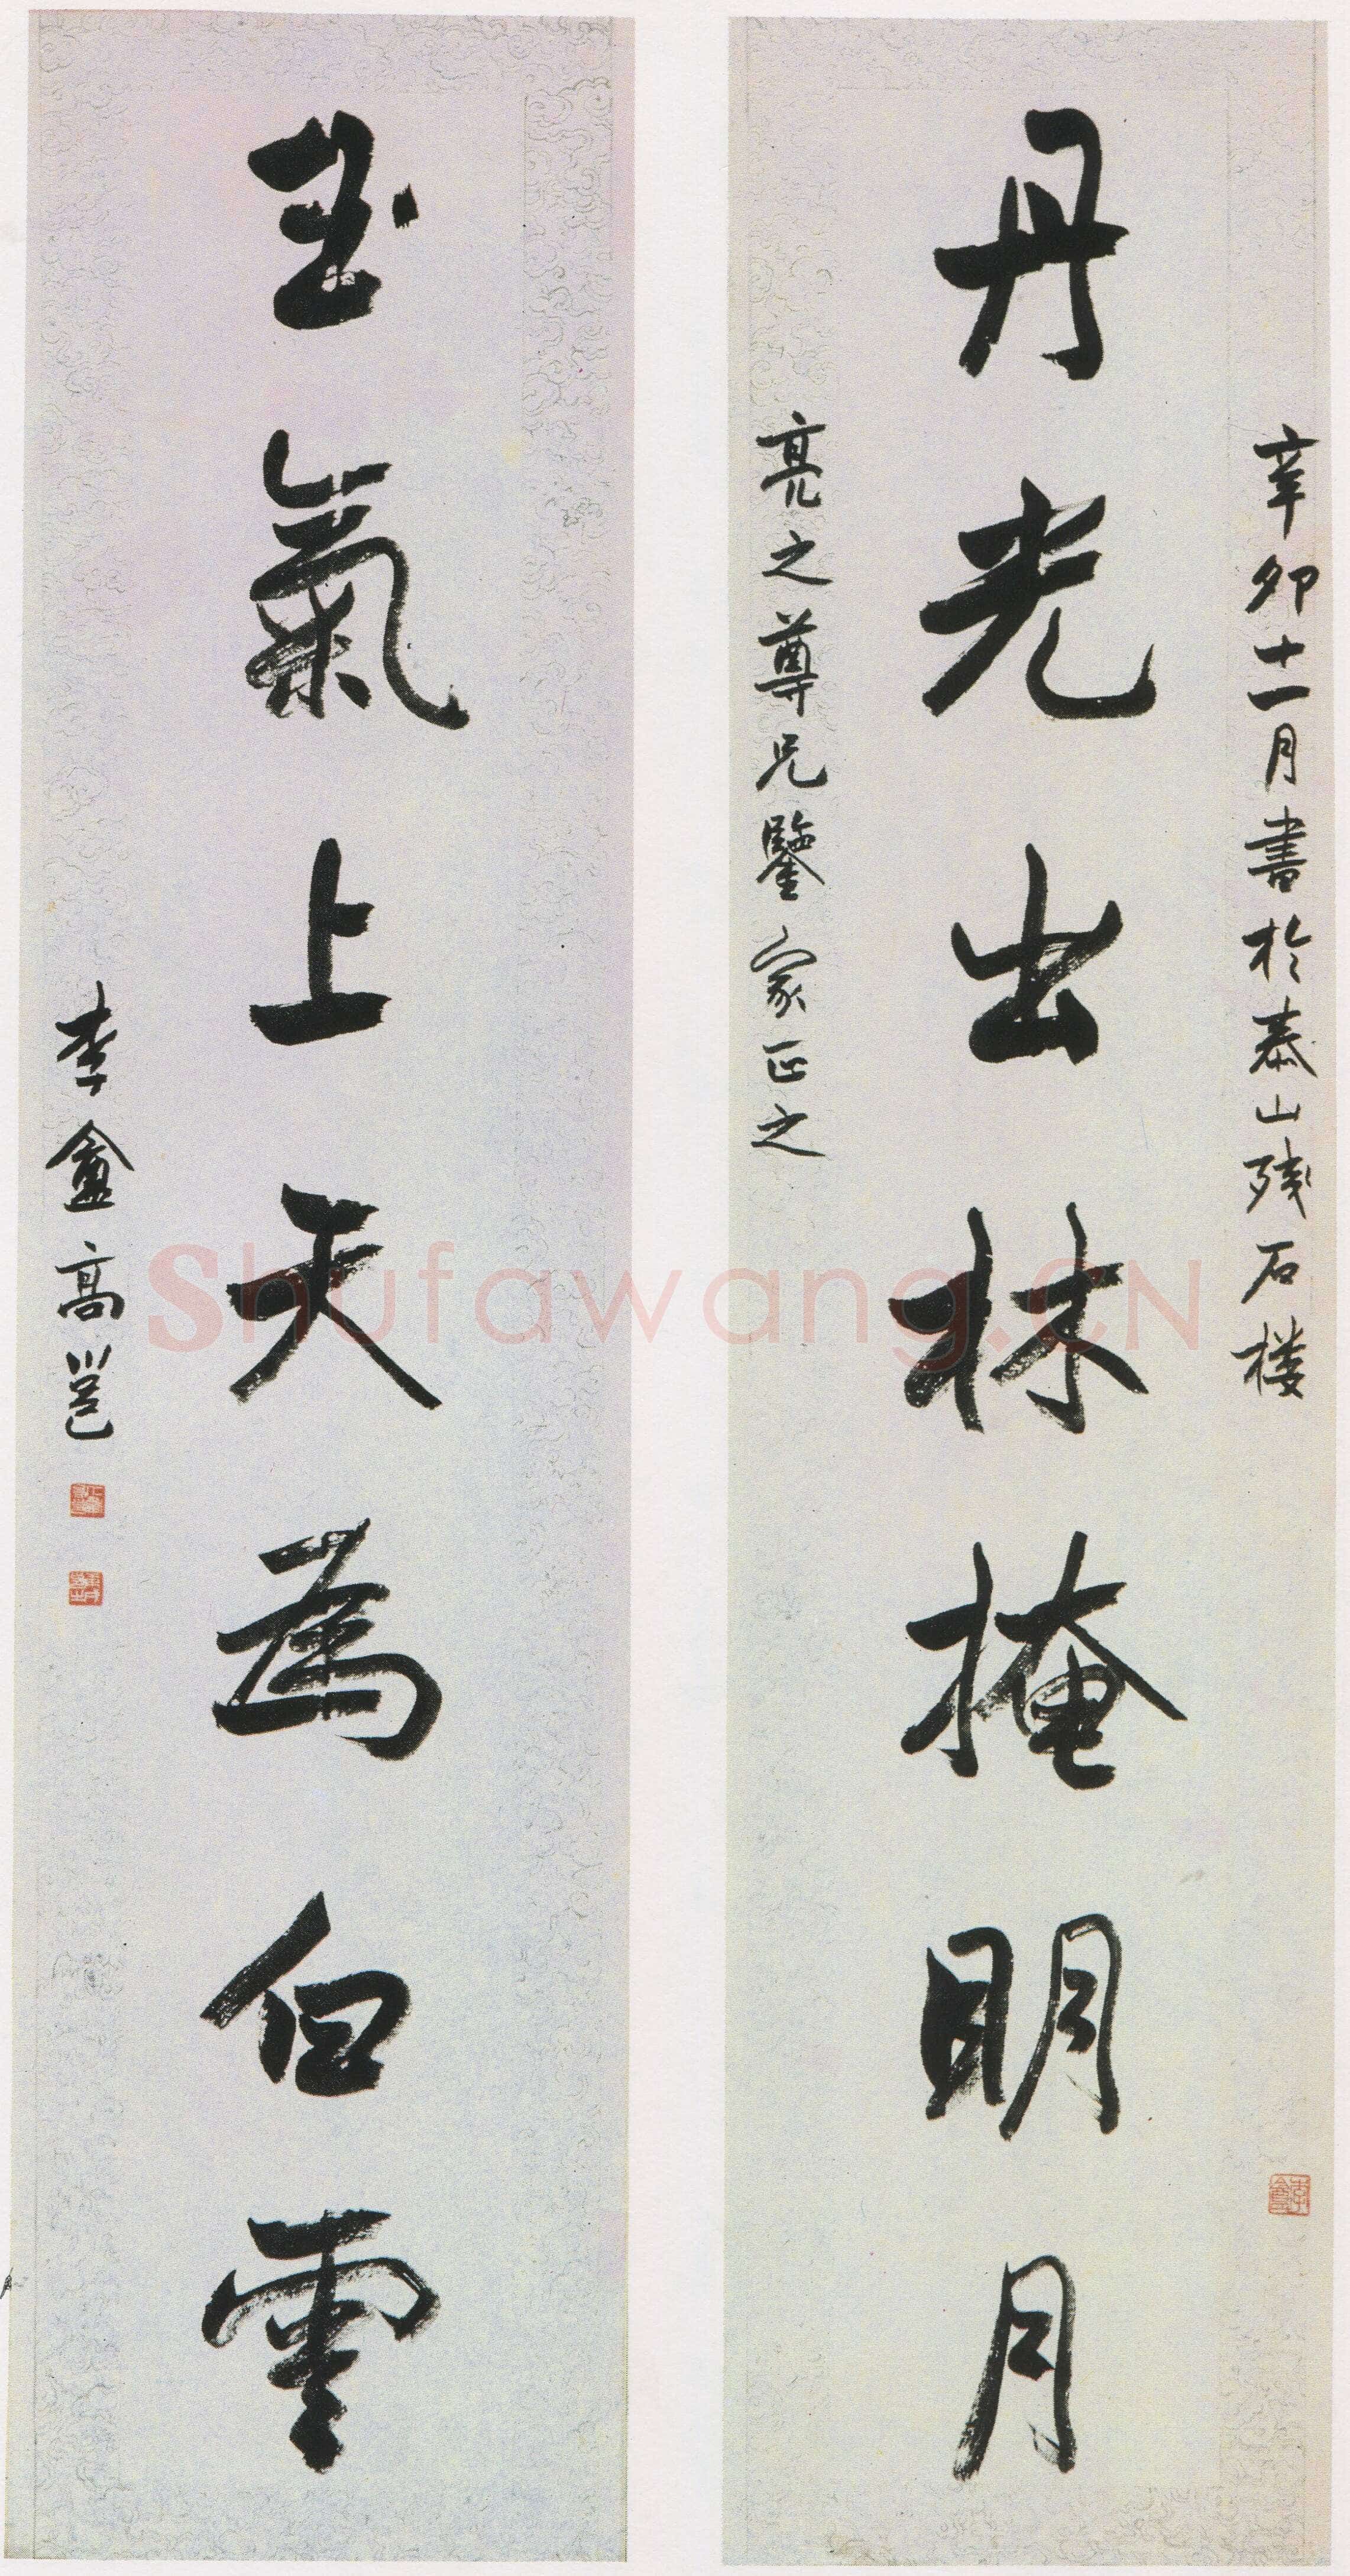 辛卯十一月書於泰山残石楼
丹光出林掩明月
亮之尊兄鑒家正之
玉氣上天為白雲
李盦高邕
Shufawang.CN